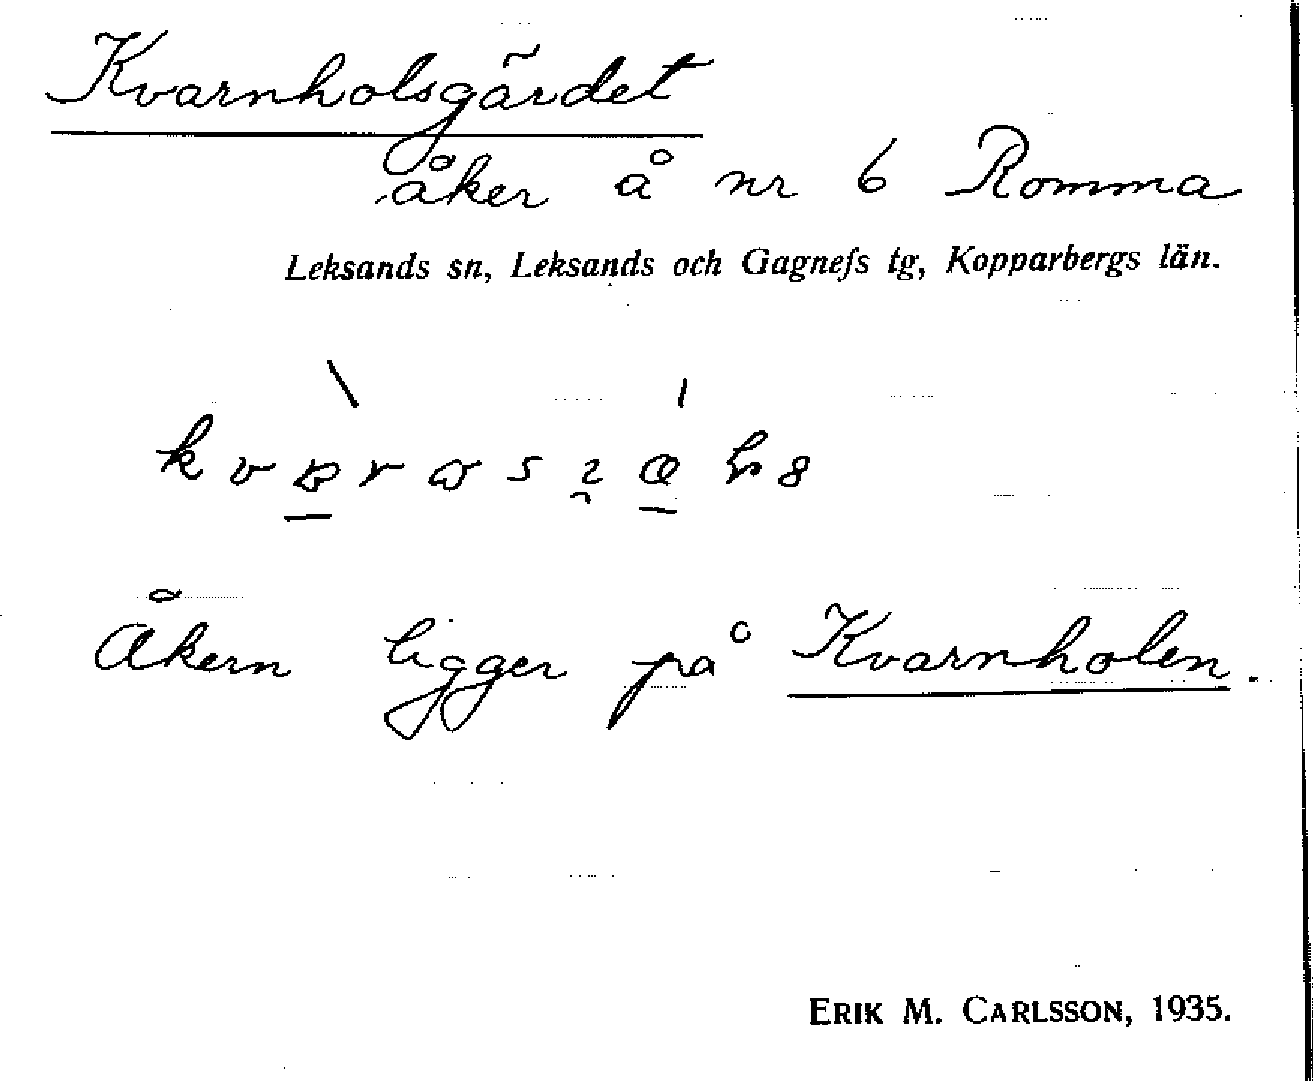 Kvarnholsgärdet
åker å nr 6 Romma
Leksands sn, Leksands och Gagnefs tg, Kopparbergs län.
Åkern ligger på Kvarnholen.
ERIK M. CARLSSON, 1935.